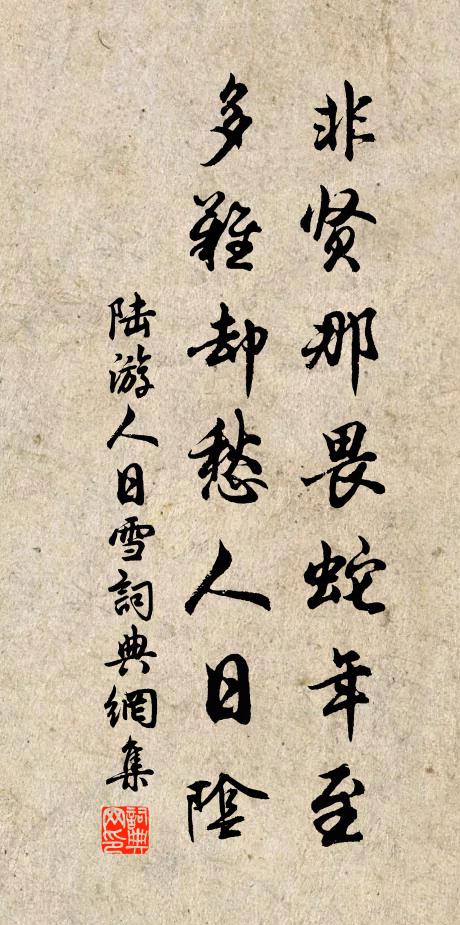 非贤那畏蛇年至
多難却愁人日陰
陆游人日雪詞典網集
詞典网印